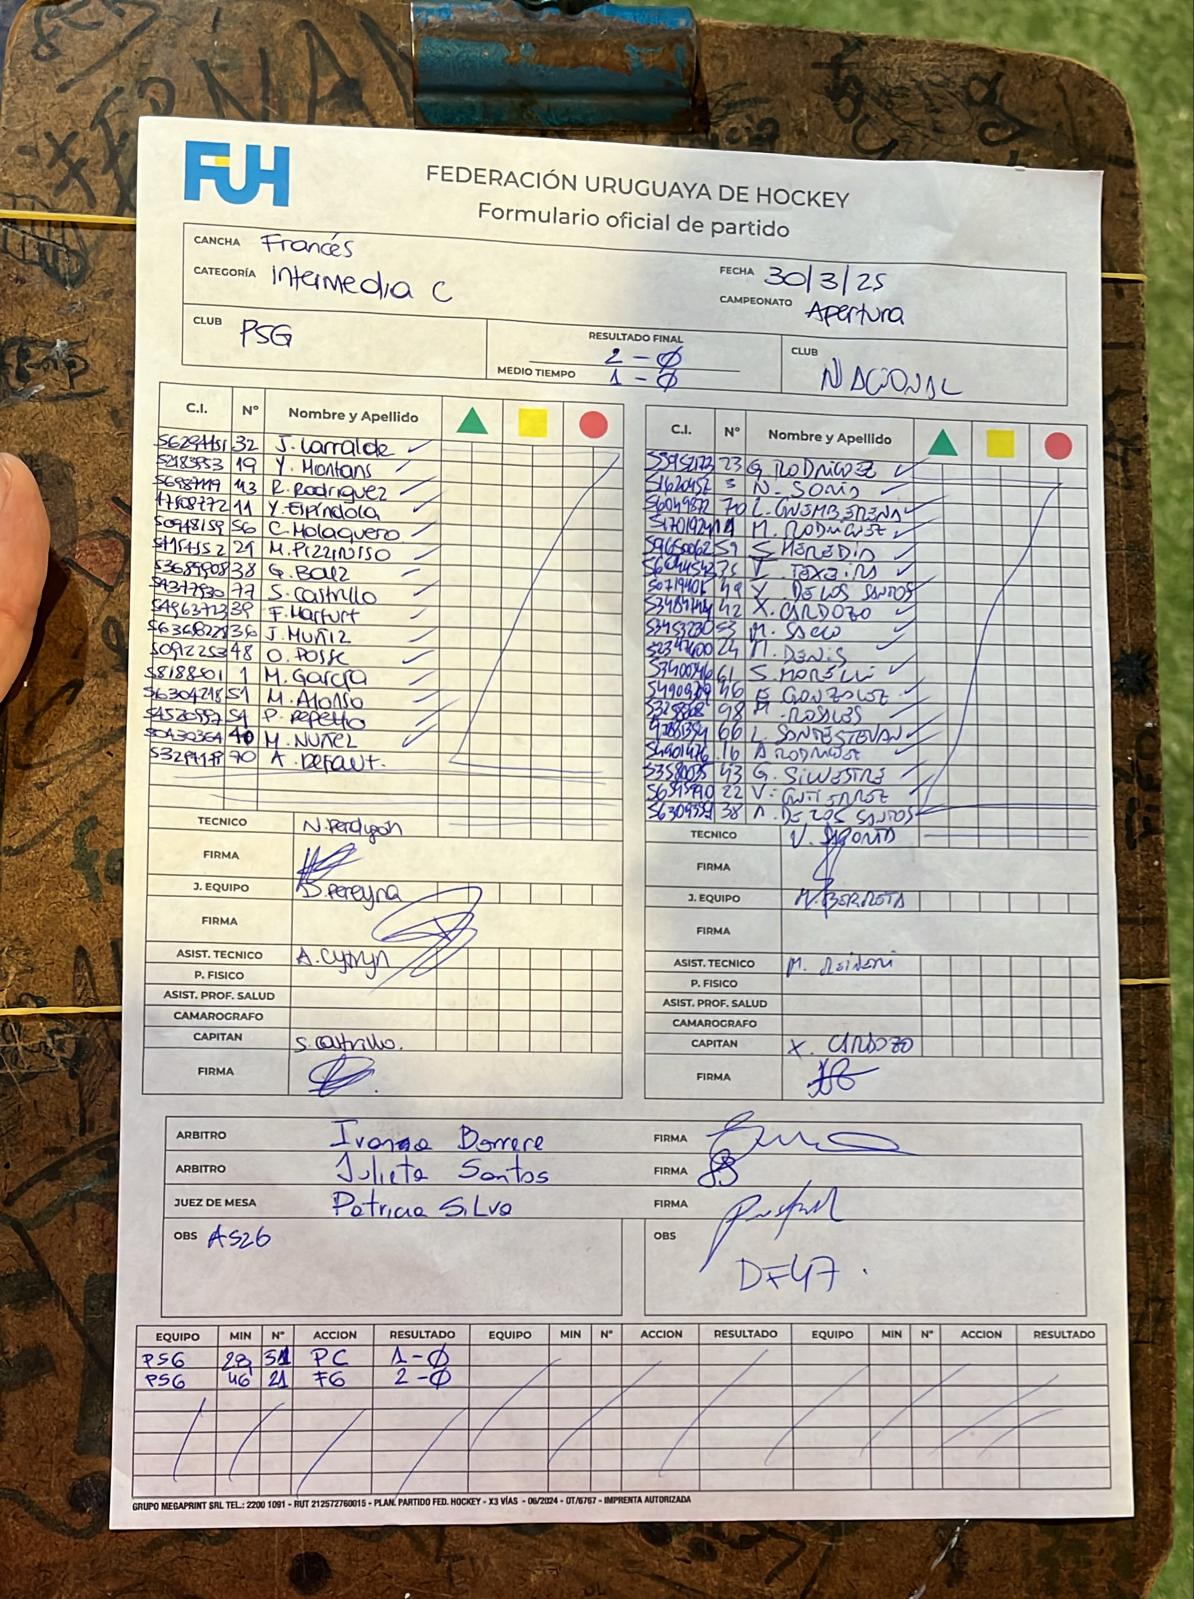 FUH
FEDERACIÓN URUGUAYA DE HOCKEY
Formulario oficial de partido
CANCHA Francés
CATEGORÍA Intermedia C
FECHA 30/3/25
CAMPEONATO Apertura
CLUB PSG
RESULTADO FINAL 2-0
MEDIO TIEMPO 1-0
CLUB NACIONAL
C.I. N° Nombre y Apellido
32 J. Larralde
19 Y. Montans
43 R. Rodriguez
11 Y. Espíndola
50948159 56 C. Molaguero
21 M. PIZZINISSO
38 G. Baez
77 S. Castrillo
39 F. Harfurt
36 J. MUÑIZ
50912253 48 O. POSSE
5818850 1 M. García
56304218 51 M. Alonso
54520557 54 P. Repetto
50430364 40 M. NUÑEZ
70 A. DEFAUT.
TECNICO N. Perdigon
FIRMA
J. EQUIPO D. Pereyra
FIRMA
ASIST. TECNICO A. Cytryn
P. FISICO
ASIST. PROF. SALUD
CAMAROGRAFO
CAPITAN S. Castrillo.
FIRMA
C.I. N° Nombre y Apellido
23 G. RODRIGUEZ
51620457 3 N. SORIA
56049872 70 L. GUEMBERENA
M. RODRIGUEZ
59650062 59 S. HEREDIA
75 V. TEXEIRA
50719401 49 Y. DE LOS SANTOS
42 X. CARDOZO
53453230 53 M. SACO
52347600 24 M. DENIS
53400746 61 S. MORELLI
46 E. GONZALEZ
98 M. ROSALES
66 L. SANTESTEVAN
54901476 16 A RODRIGUEZ
43 G. SILVESTRE
22 V. GUTIERREZ
38 A. DE LOS SANTOS
TECNICO
FIRMA
J. EQUIPO M. BERRETA
FIRMA
ASIST. TECNICO M.
P. FISICO
ASIST. PROF. SALUD
CAMAROGRAFO
CAPITAN X. CARDOZO
FIRMA
ARBITRO Ivanna Borrere FIRMA
ARBITRO Julieta Santos FIRMA
JUEZ DE MESA Patricia Silva FIRMA
OBS AS26
OBS DF47.
EQUIPO MIN N° ACCION RESULTADO EQUIPO MIN N° ACCION RESULTADO EQUIPO MIN N° ACCION RESULTADO
PSG 29 51 PC 1-0
PSG 46 21 FG 2-0
GRUPO MEGAPRINT SRL TEL.: 2200 1091 - RUT 212572760015 - PLAN. PARTIDO FED. HOCKEY - X3 VÍAS - 06/2024 - OT/6767 - IMPRENTA AUTORIZADA